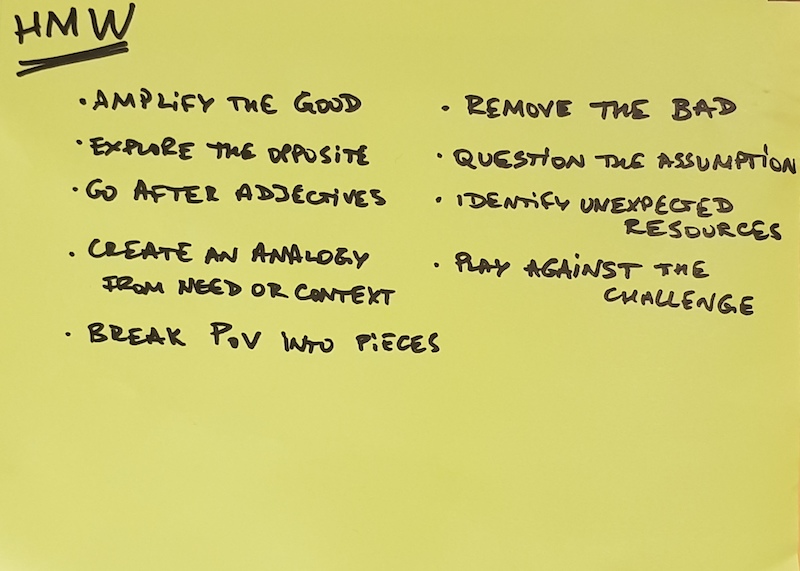 HMW
• AMPLIFY THE GOOD
• EXPLORE THE OPPOSITE
• GO AFTER ADJECTIVES
• CREATE AN ANALOGY
FROM NEED OR CONTEXT
• BREAK POV INTO PIECES
• REMOVE THE BAD
• QUESTION THE ASSUMPTION
• IDENTIFY UNEXPECTED
RESOURCES
• PLAY AGAINST THE
CHALLENGE